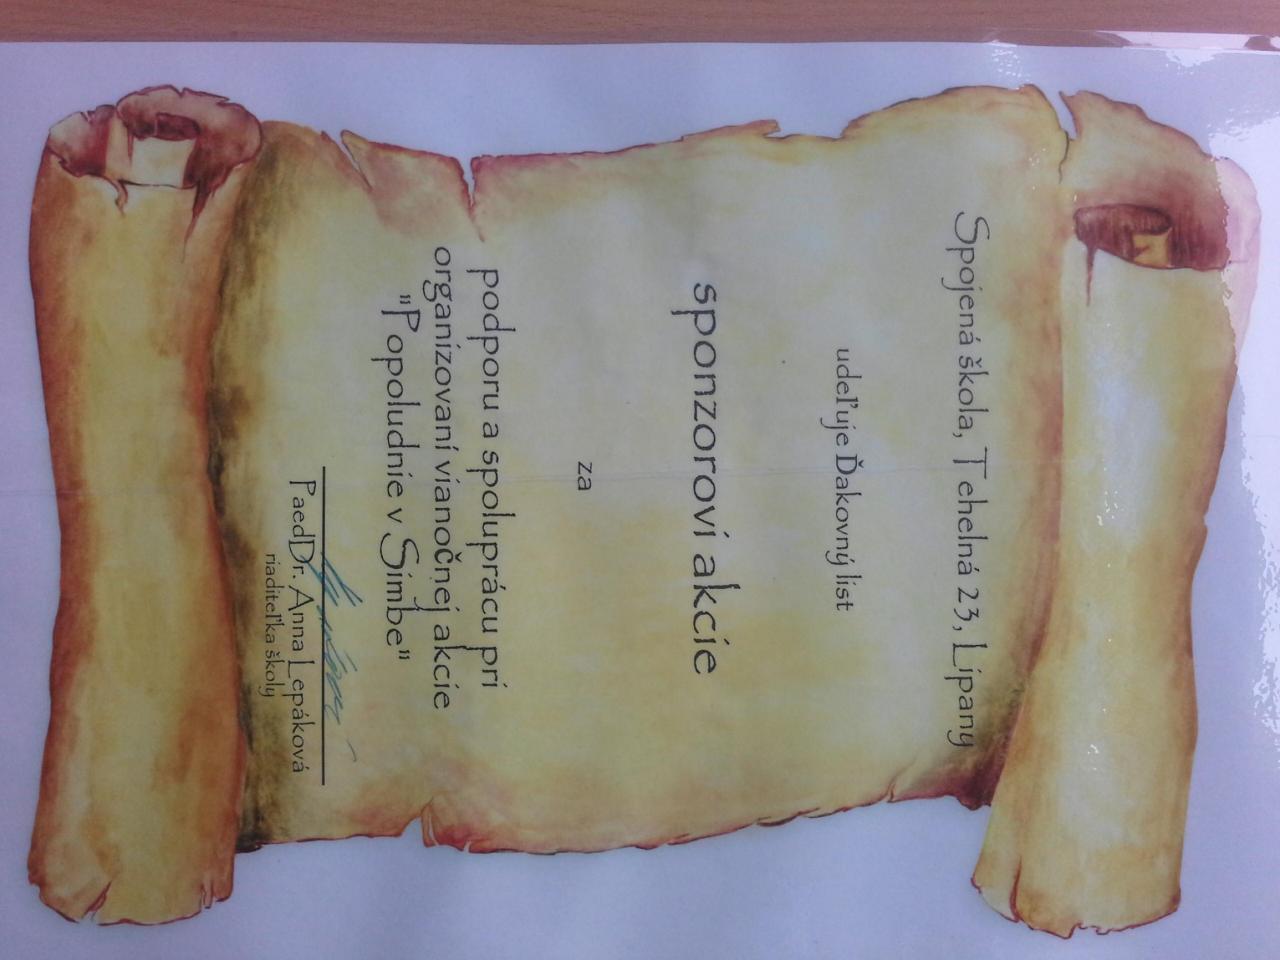 Spojená škola, Tehelná 23, Lipany
udeľuje Ďakovný list
sponzorovi akcie
za
podporu a spoluprácu pri
organizovaní vianočnej akcie
"Popoludnie v Simbe"
PaedDr. Anna Lepáková
riaditeľka školy